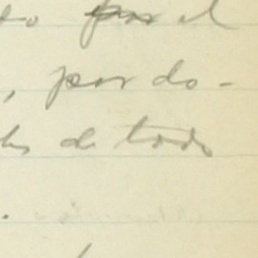 do por el
, por do-
de todo
.